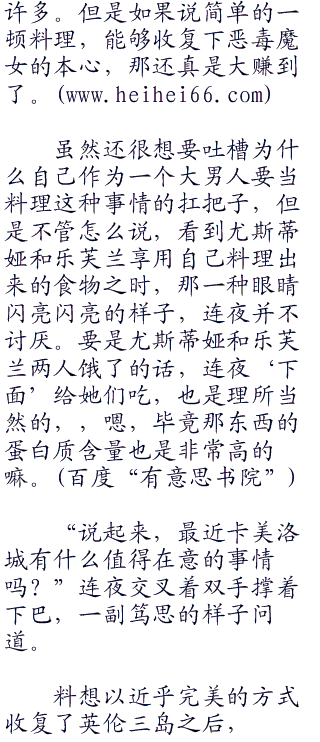 许多。但是如果说简单的一
顿料理，能够收复下恶毒魔
女的本心，那还真是大赚到
了。(www.heihei66.com)
虽然还很想要吐槽为什
么自己作为一个大男人要当
料理这种事情的扛把子，但
是不管怎么说，看到尤斯蒂
娅和乐芙兰享用自己料理出
来的食物之时，那一种眼睛
闪亮闪亮的样子，连夜并不
讨厌。要是尤斯蒂娅和乐芙
兰两人饿了的话，连夜‘下
面’给她们吃，也是理所当
然的，，嗯，毕竟那东西的
蛋白质含量也是非常高的
嘛。(百度“有意思书院”)
“说起来，最近卡美洛
城有什么值得在意的事情
吗？”连夜交叉着双手撑着
下巴，一副笃思的样子问
道。
料想以近乎完美的方式
收复了英伦三岛之后，